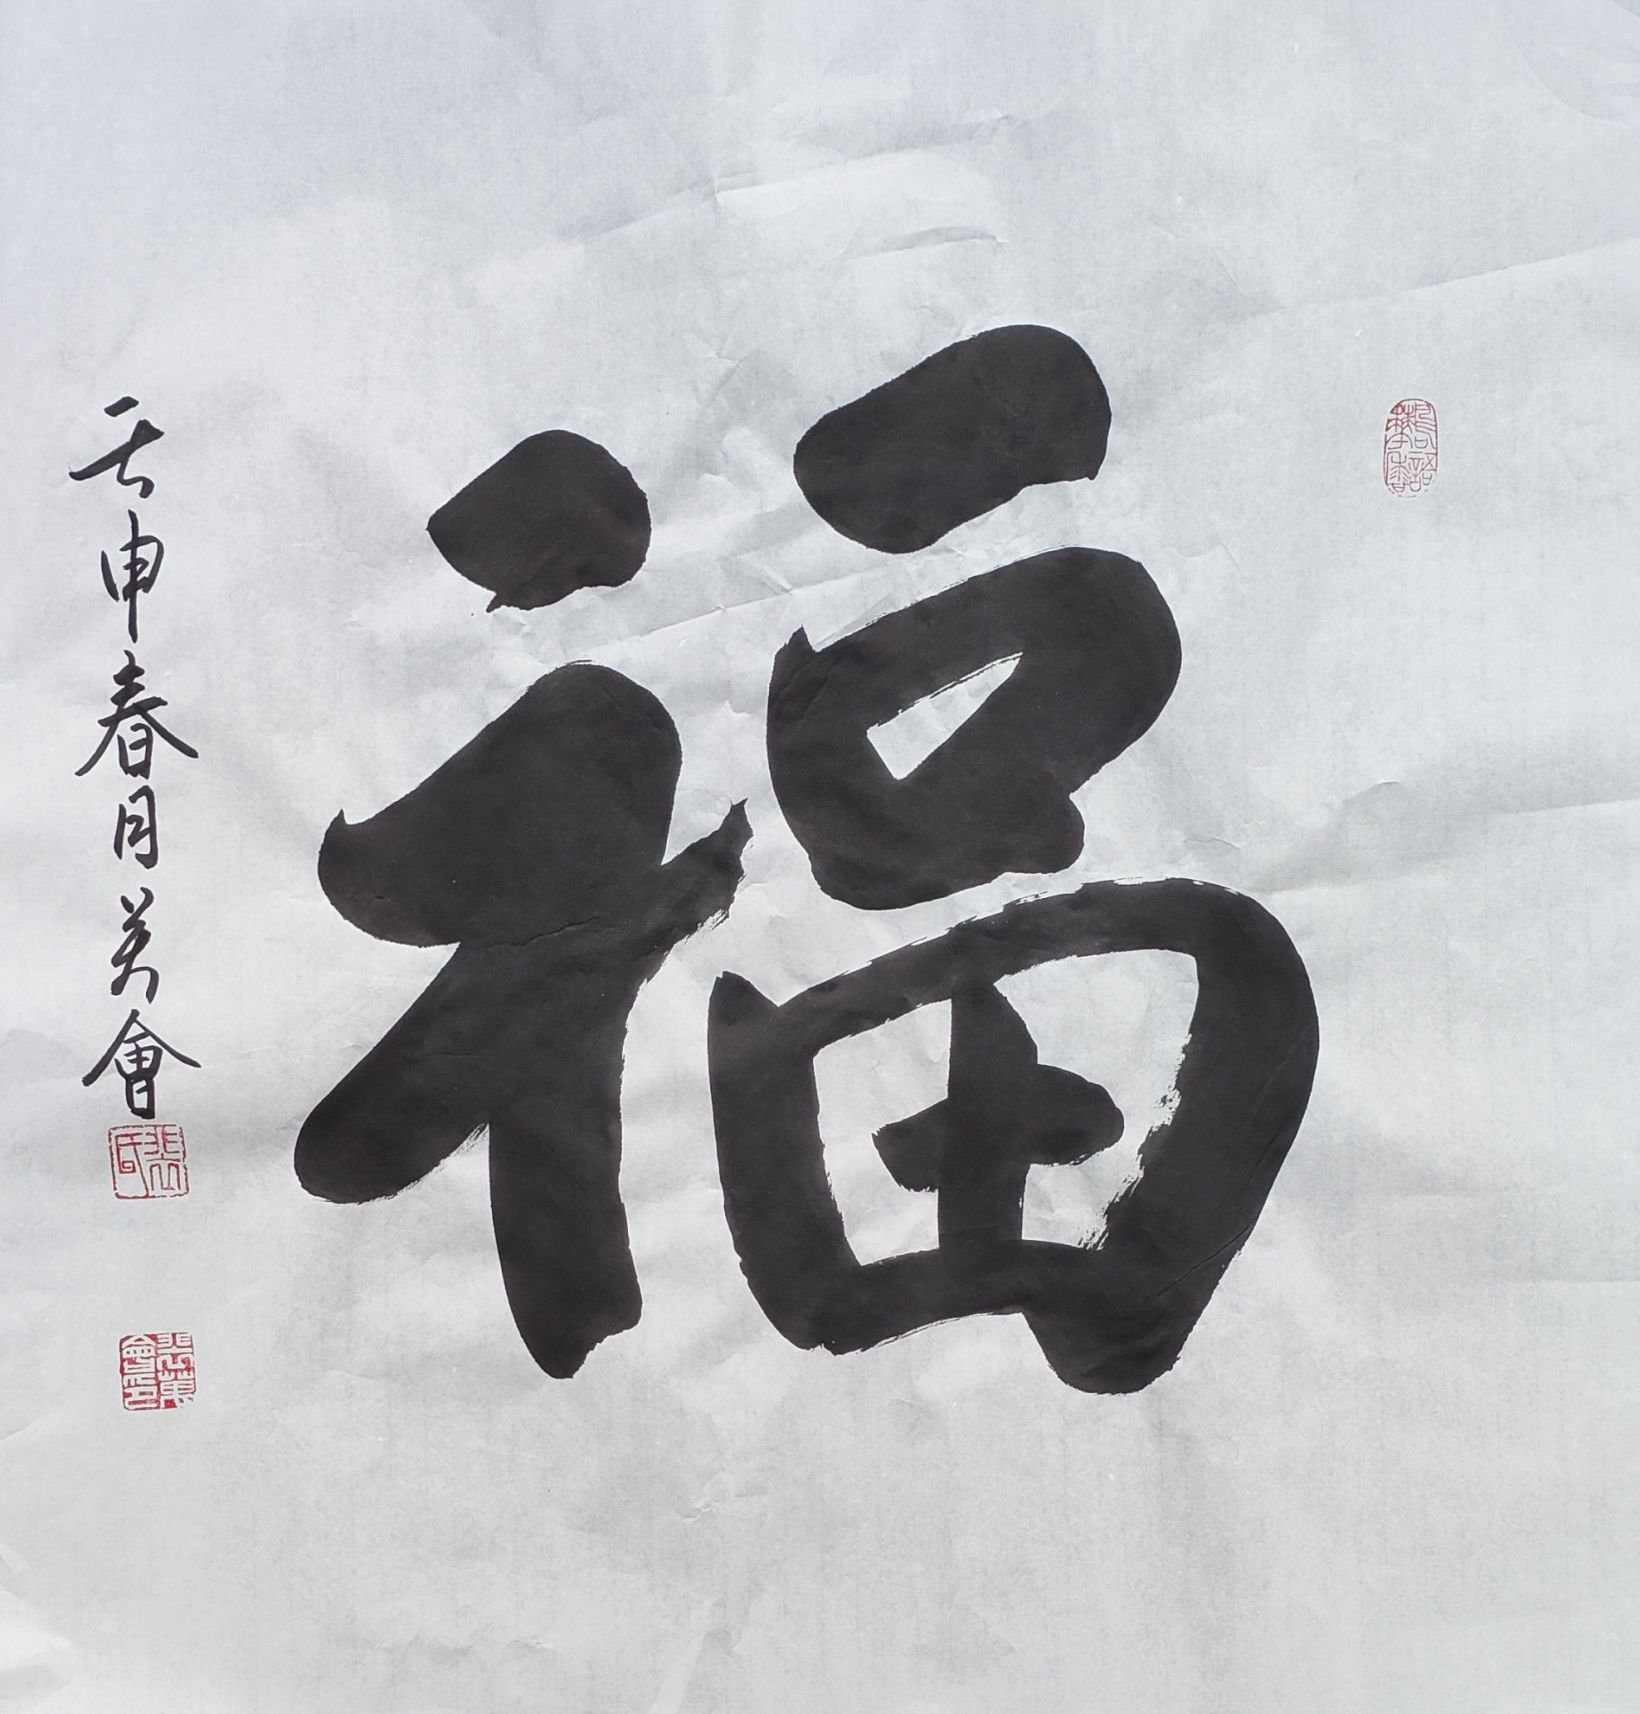 福
壬申春月美會